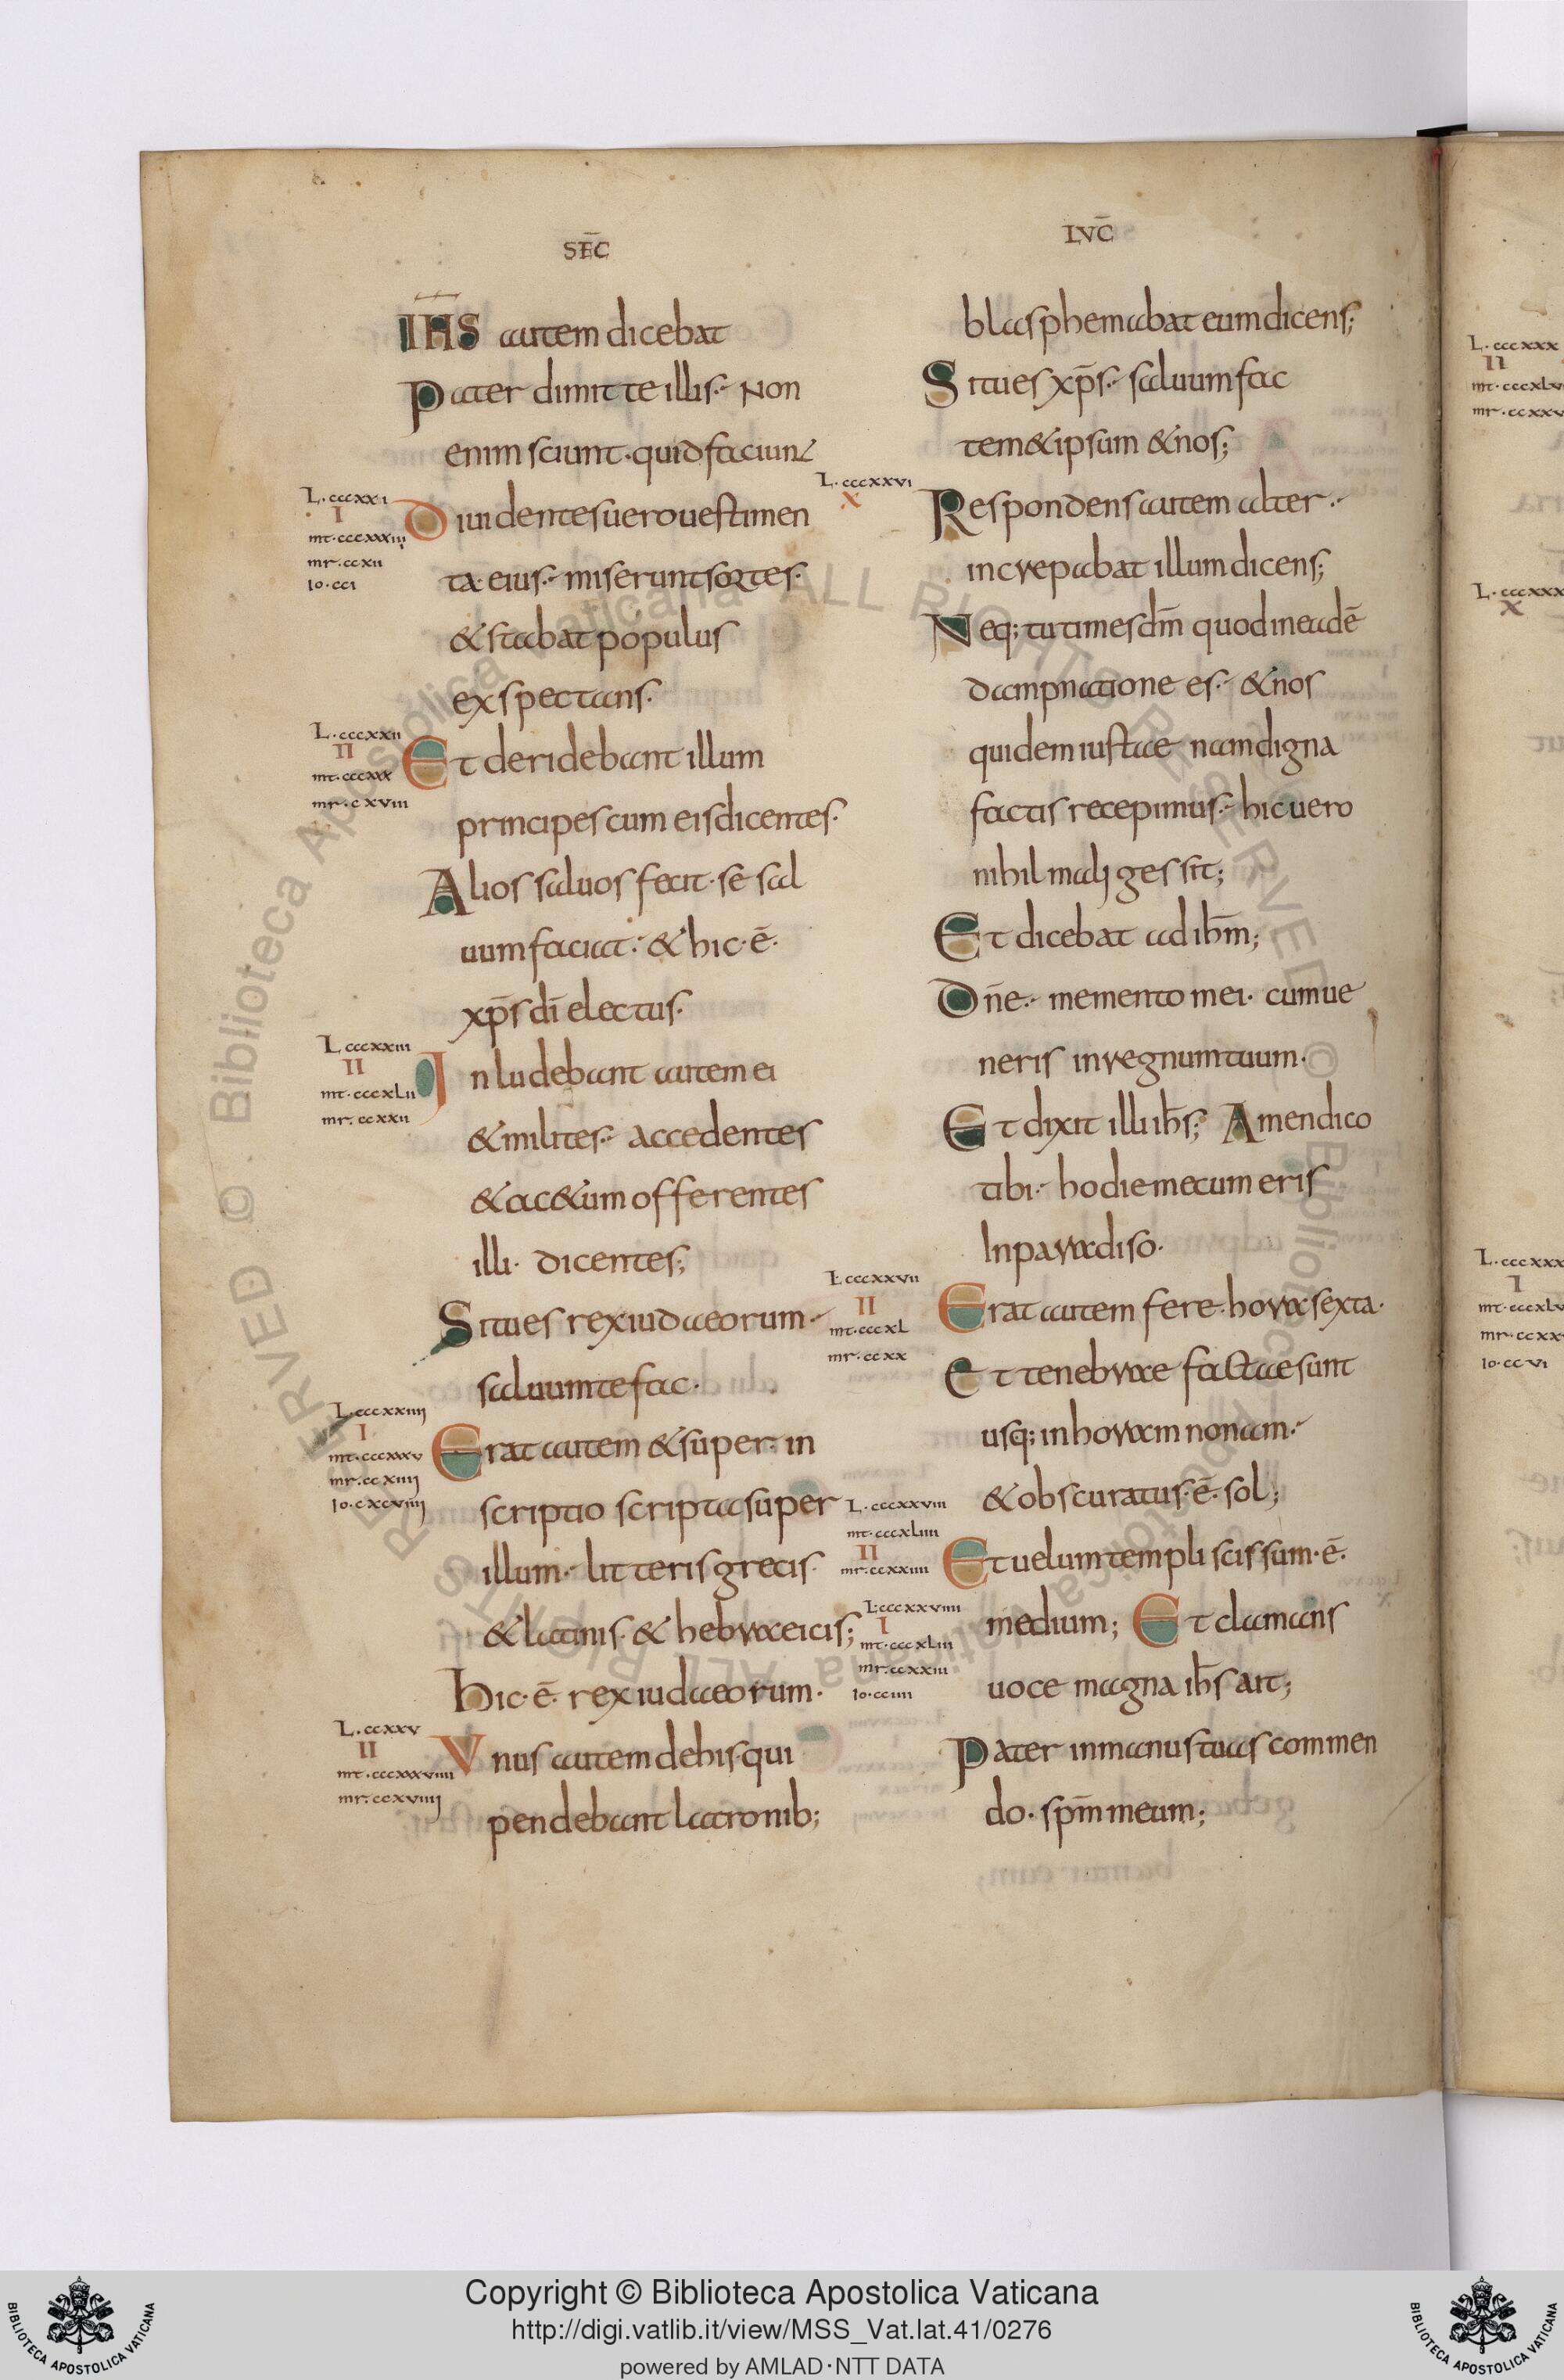 SEC̄
LVC̄
IHS autem dicebat
Pater dimitte illis. Non
enim sciunt. quid faciunt
L. cccxxi
I
mt. cccxxxiiii
mr. ccxii
Io. cci
Diuidentes uero uestimen
ta eius. miserunt sortes.
& stabat populus
exspectans.
L. cccxxii
II
mt. cccxxx
mr. cxviii
Et deridebant illum
principes cum eis dicentes.
Alios saluos fecit. se sal
uum faciat. & hic. ē.
xp̄s dī electus.
L. cccxxiii
II
mt. cccxLii
mr. ccxxii
Inludebant autem ei
& milites. accedentes
& ac&um offerentes
illi. dicentes;
Si tu es rex iudaeorum.
saluum te fac.
L. cccxxiiii
I
mt. cccxxxv
mr. ccxiiii
Io. cxcviiii
Erat autem & super in
scriptio scripta super
illum. litteris grecis.
& latinis. & hebraeicis;
Hic. ē. rex iudaeorum.
L. ccxxv
II
mt. cccxxxviiii
mr. ccxviiii
Vnus autem de his. qui
pendebant latronib;
blasphemabat eum dicens;
Si tu es xp̄s. saluum fac
tem&ipsum & nos;
L. cccxxvi
X
Respondens autem alter.
increpabat illum dicens;
Neq; tu times dm̄ quod in eadē
dampnatione es. & nos
quidem iustae nam digna
factis recepimus. hic uero
nihil mali gessit;
Et dicebat ad ihm̄;
Dn̄e. memento mei. cum ue
neris in regnum tuum.
Et dixit illi ih̄s; Amen dico
tibi. hodie mecum eris
In paradiso.
L. cccxxvii
II
mt. cccxL
mr. ccxx
Erat autem fere. hora sexta.
Et tenebrae factae sunt
usq; in horam nonam.
& obscuratus. ē. sol;
L. cccxxviii
mt. cccxLiiii
II
mr. ccxxiiii
Et uelum templi scissum. ē.
medium; Et clamans
L. cccxxviiii
I
mt. cccxLiii
mr. ccxxiii
Io. cciiii
uoce magna ih̄s ait;
Pater in manus tuas commen
do. spm̄ meum;
L. cccxxx
II
mt. cccxLv
mr. ccxxv
L. cccxxx
X
L. cccxxx
I
mt. cccxLv
mr. ccxx
Io. ccvi
© Biblioteca Apostolica Vaticana ALL RIGHTS RESERVED © Biblioteca Apostolica Vaticana ALL RIGHTS RESERVED
BIBLIOTECA APOSTOLICA VATICANA
Copyright © Biblioteca Apostolica Vaticana
http://digi.vatlib.it/view/MSS_Vat.lat.41/0276
powered by AMLAD·NTT DATA
BIBLIOTECA APOSTOLICA VATICANA